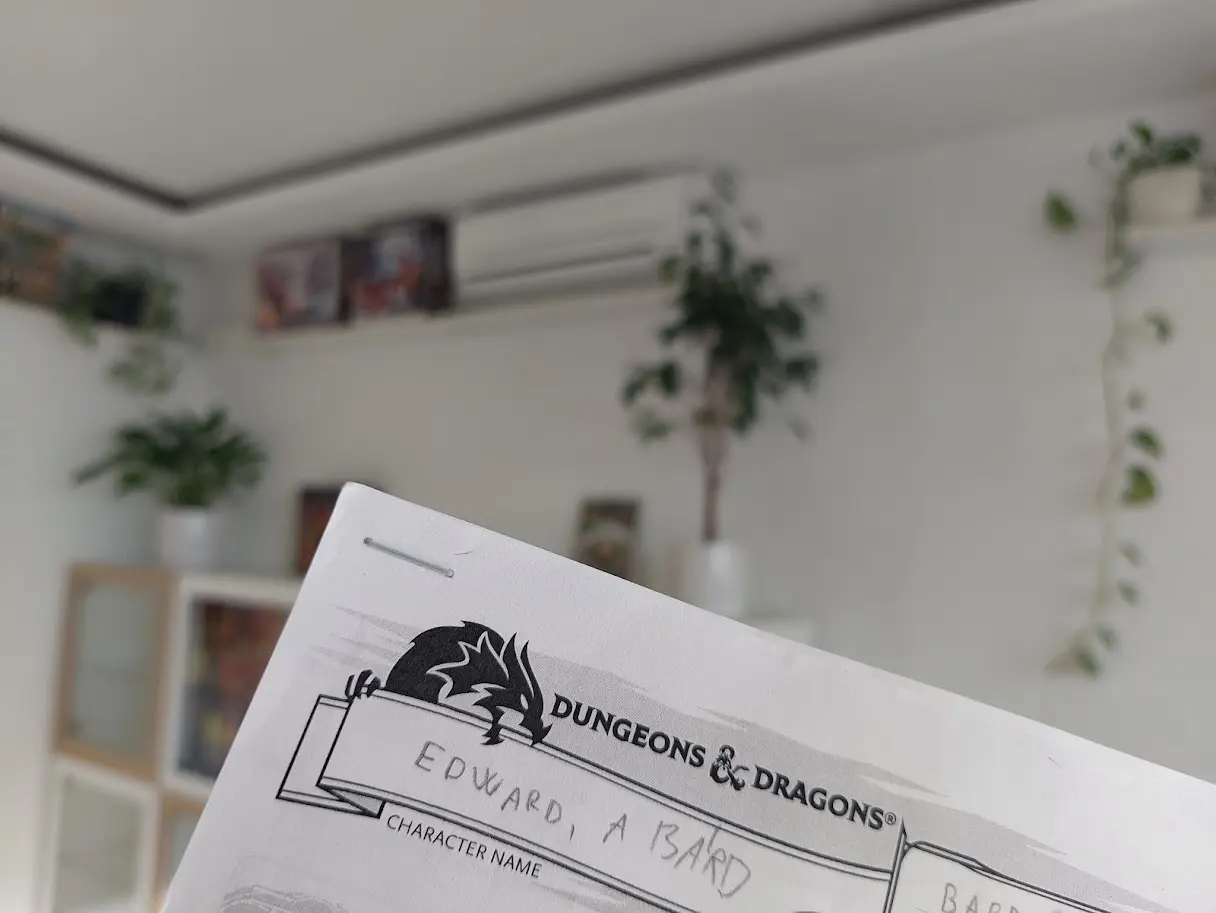 DUNGEONS & DRAGONS®
EDWARD, A BARD
CHARACTER NAME